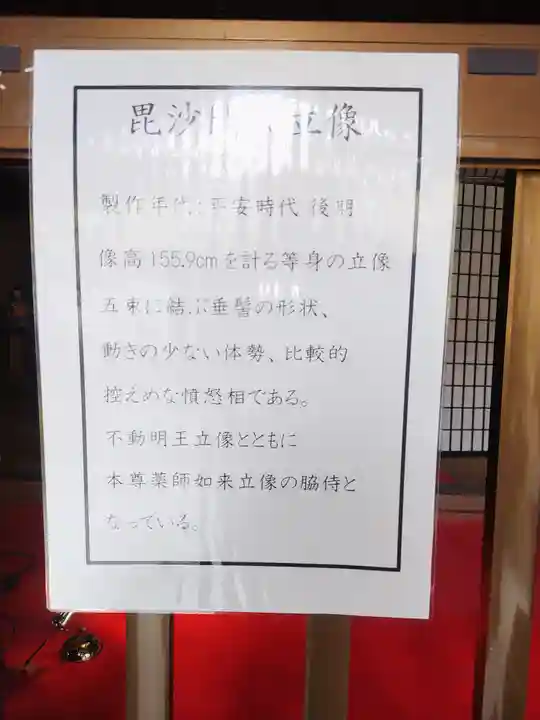 毘沙門天立像
製作年代:平安時代 後期
像高155.9cmを計る等身の立像
五束に結ぶ垂髻の形状、
動きの少ない体勢、比較的
控えめな憤怒相である。
不動明王立像とともに
本尊薬師如来立像の脇侍と
なっている。